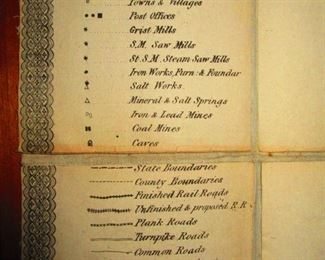 Towns & Villages
Post Offices
Grist Mills
S.M. Saw Mills
St.S.M. Steam Saw Mills
Iron Works, Furn: & Foundar
Salt Works
Mineral & Salt Springs
Iron & Lead Mines
Coal Mines
Caves
State Boundaries
County Boundaries
Finished Rail Roads
Unfinished & proposed R.R.
Plank Roads
Turnpike Roads
Common Roads